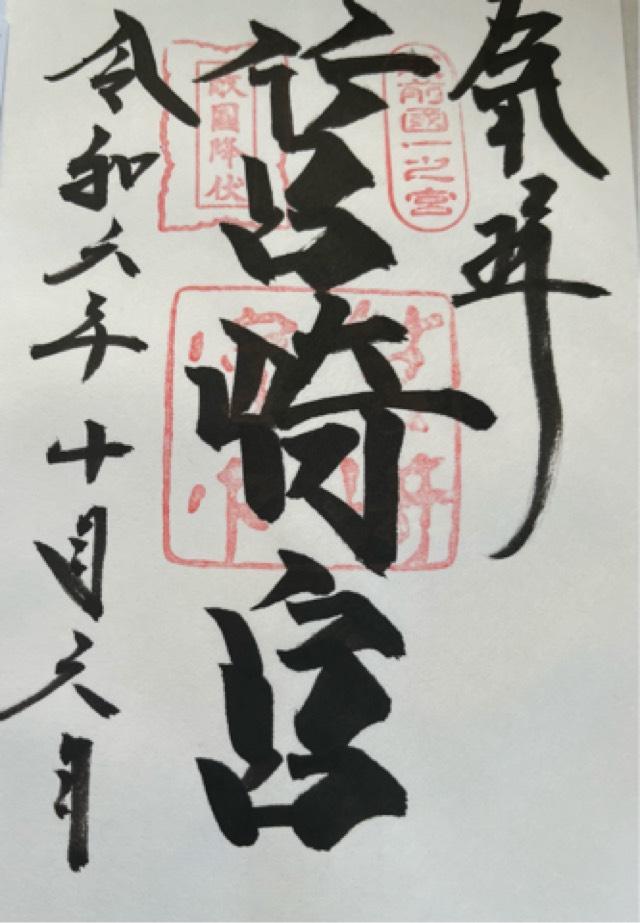 奉拝
筑前國一之宮
筥崎宮
敵國降伏
令和六年十月六日